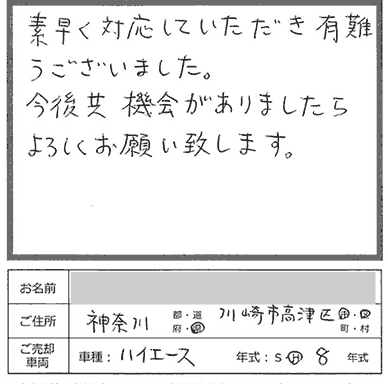 素早く対応していただき有難
うございました。
今後共 機会がありましたら
よろしくお願い致します。
お名前
ご住所 神奈川 都・道 府・県 川崎市高津区 市・区 町・村
ご売却車両 車種：ハイエース 年式：S H 8 年式